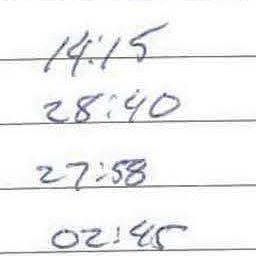 14:15
28:40
27:58
02:45